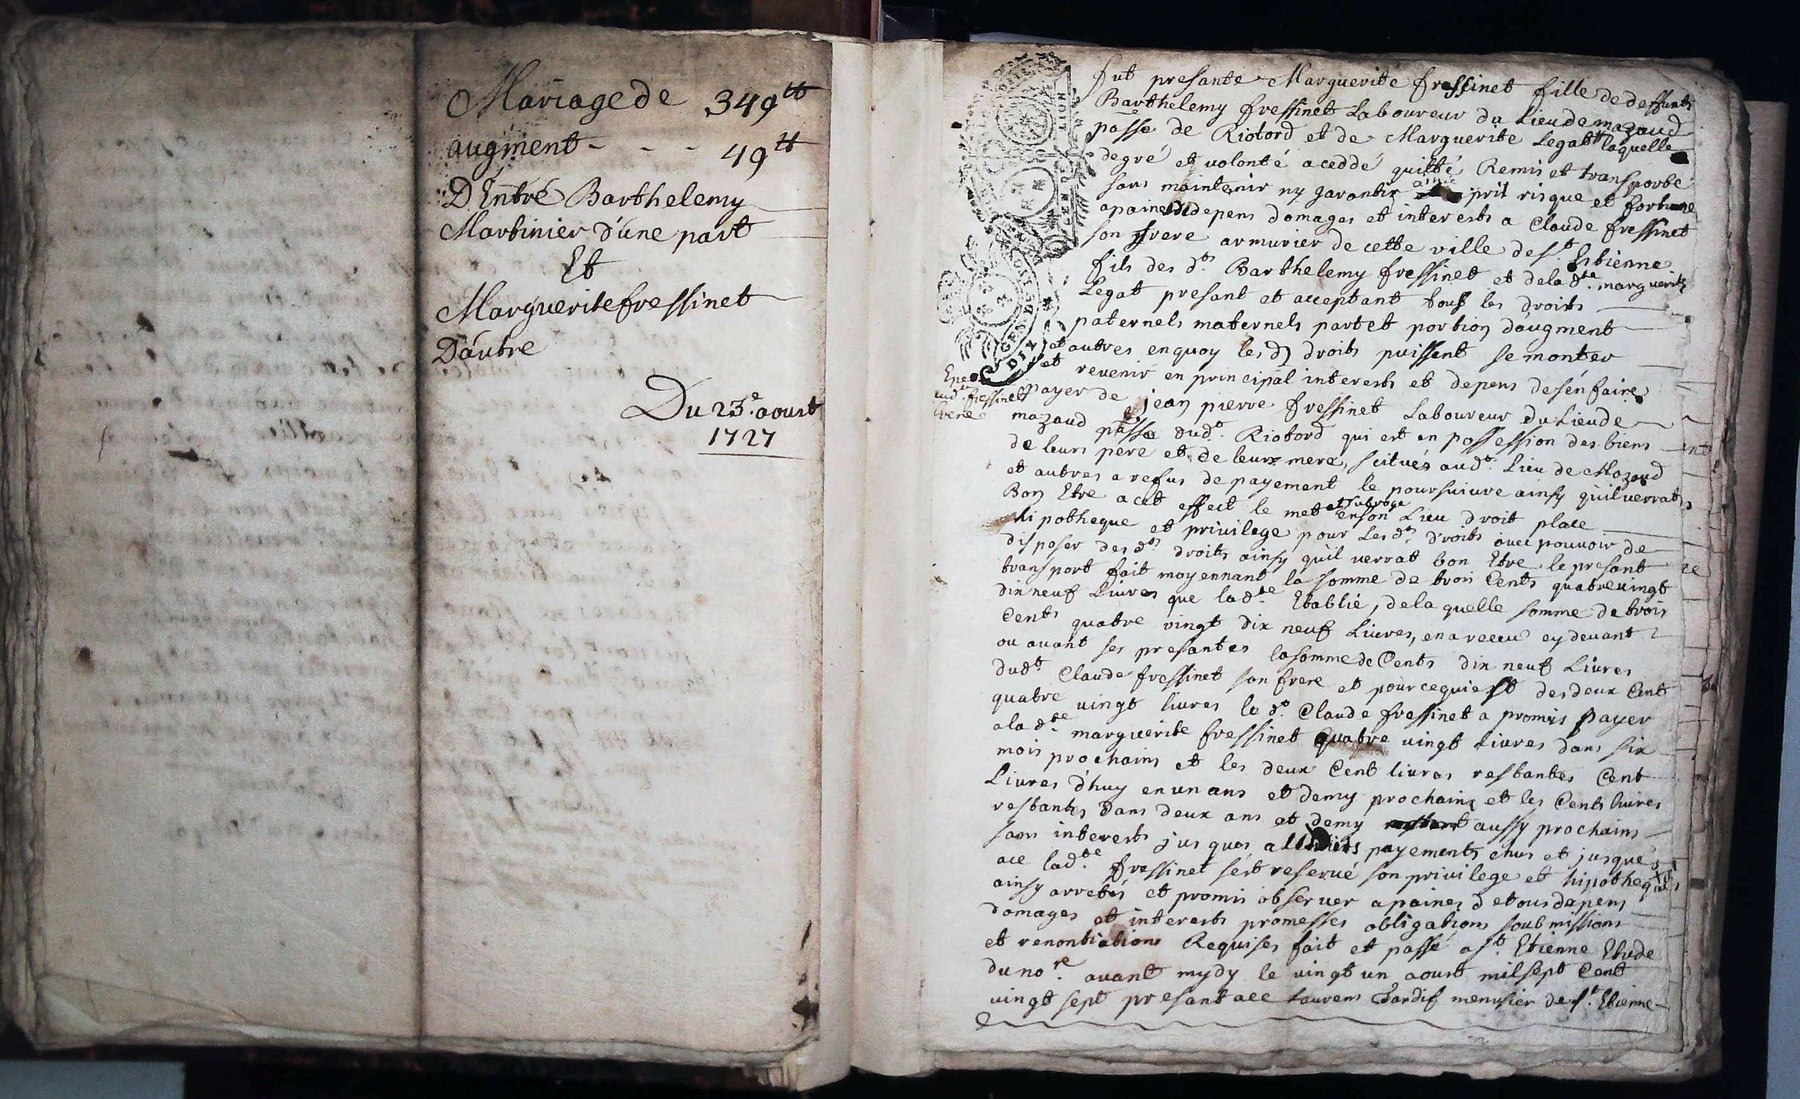 Mariage de 349 tt
augment - - - 49 tt
D'Entre Barthelemy
Martinier d'une part
Et
Marguerite fressinet
D'autre
Du 23e. aoust
1727
fut presante Marguerite fressinet fille de deffunts
Barthelemy fressinet Laboureur du Lieu de mazaud
passe de Riotord et de Marguerite Legat laquelle
degré et volonté a ceddé quitté Remis et transporte
sans maintenir ny garantir pril risque et fortune
apaine depens domages et interests a Claude fressinet
son frere armurier de cette ville de st. Etienne
fils des ds. Barthelemy fressinet et de la dte. marguerite
Legat presant et acceptant tous les droits
paternels maternels part et portion d'augment
et autres en quoy les d droits puissent se monter
et revenir en principal interests et depens de s'en faire
payer de jean pierre fressinet Laboureur du Lieu de
mazaud passe dudt. Riotord qui est en possession des biens
de leurs pere et de leurs mere, scitués audt. Lieu de Mazaud
et autres a refus de payement le poursuivre ainsy qu'il verrat
Bon Etre a cet effect le met et subroge en son Lieu droit place
hipotheque et privilege pour les ds. droits avec pouvoir de
disposer des ds. droits ainsy qu'il verrat bon Etre, le presant
transport fait moyennant la somme de trois Cents quatre vingt
dix neuf Livres que la dte. Etablie, de la quelle somme de trois
Cents quatre vingt dix neuf Livres, en a receu cy devant
ou avant ses presantes la somme de Cents dix neuf Livres
dudt. Claude fressinet son frere et pour ce qui est des deux Cent
quatre vingt livres le d. Claude fressinet a promis payer
a la dte. marguerite fressinet quatre vingt Livres dans six
mois prochains et les deux Cent livres restantes Cent
Livres d'huy en un ans et demy prochains et les Cents livres
restantes dans deux ans et demy aussy prochains
sans interests jusques a payements chus et jusque
ace ladte. fressinet s'est reservé son privilege et hipotheque
ainsy arretés et promis observer a paines de tous depens
domages et interests promesses obligations soubmissions
et renontiations Requises fait et passé a st. Etienne Etude
du nore. avant mydy le vingt un aoust mil sept Cent
vingt sept presant ace Laurens Tardif menusier de st. Etienne